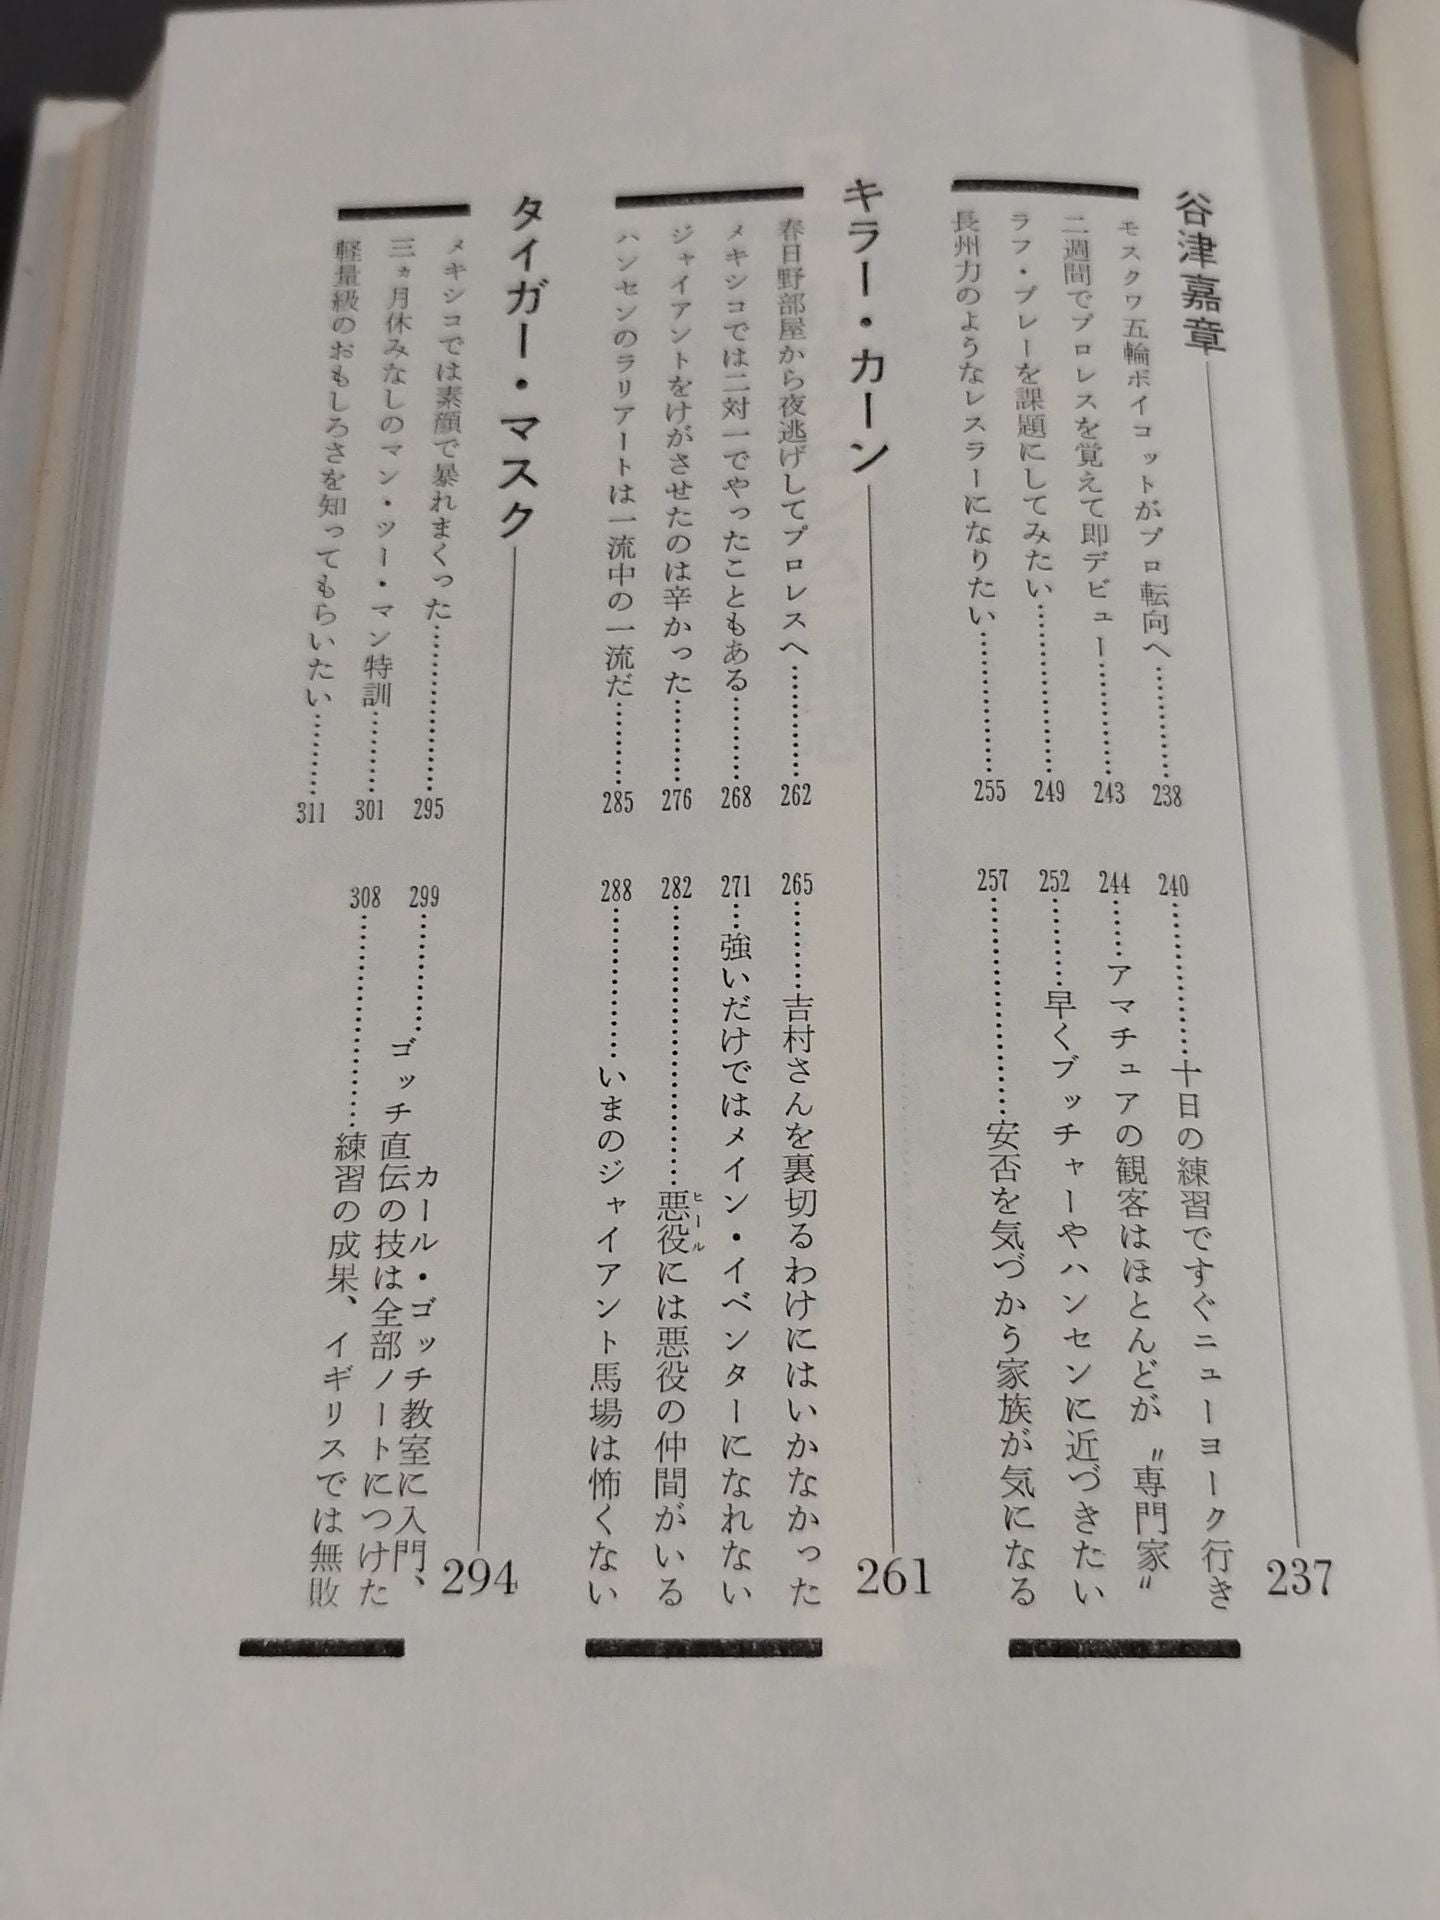 谷津嘉章 237
モスクワ五輪ボイコットがプロ転向へ………… 238
240……………十日の練習ですぐニューヨーク行き
二週間でプロレスを覚えて即デビュー………… 243
244……アマチュアの観客はほとんどが〝専門家〟
ラフ・プレーを課題にしてみたい……………… 249
252………早くブッチャーやハンセンに近づきたい
長州力のようなレスラーになりたい…………… 255
257……………………安否を気づかう家族が気になる
キラー・カーン 261
春日野部屋から夜逃げしてプロレスへ………… 262
265………吉村さんを裏切るわけにはいかなかった
メキシコでは二対一でやったこともある……… 268
271…強いだけではメイン・イベンターになれない
ジャイアントをけがさせたのは辛かった……… 276
282…………………………悪役には悪役の仲間がいる
ヒール
ハンセンのラリアートは一流中の一流だ……… 285
288……………いまのジャイアント馬場は怖くない
タイガー・マスク 294
メキシコでは素顔で暴れまくった……………… 295
299…………カール・ゴッチ教室に入門、
ゴッチ直伝の技は全部ノートにつけた
三ヵ月休みなしのマン・ツー・マン特訓……… 301
308……………………練習の成果、イギリスでは無敗
軽量級のおもしろさを知ってもらいたい……… 311